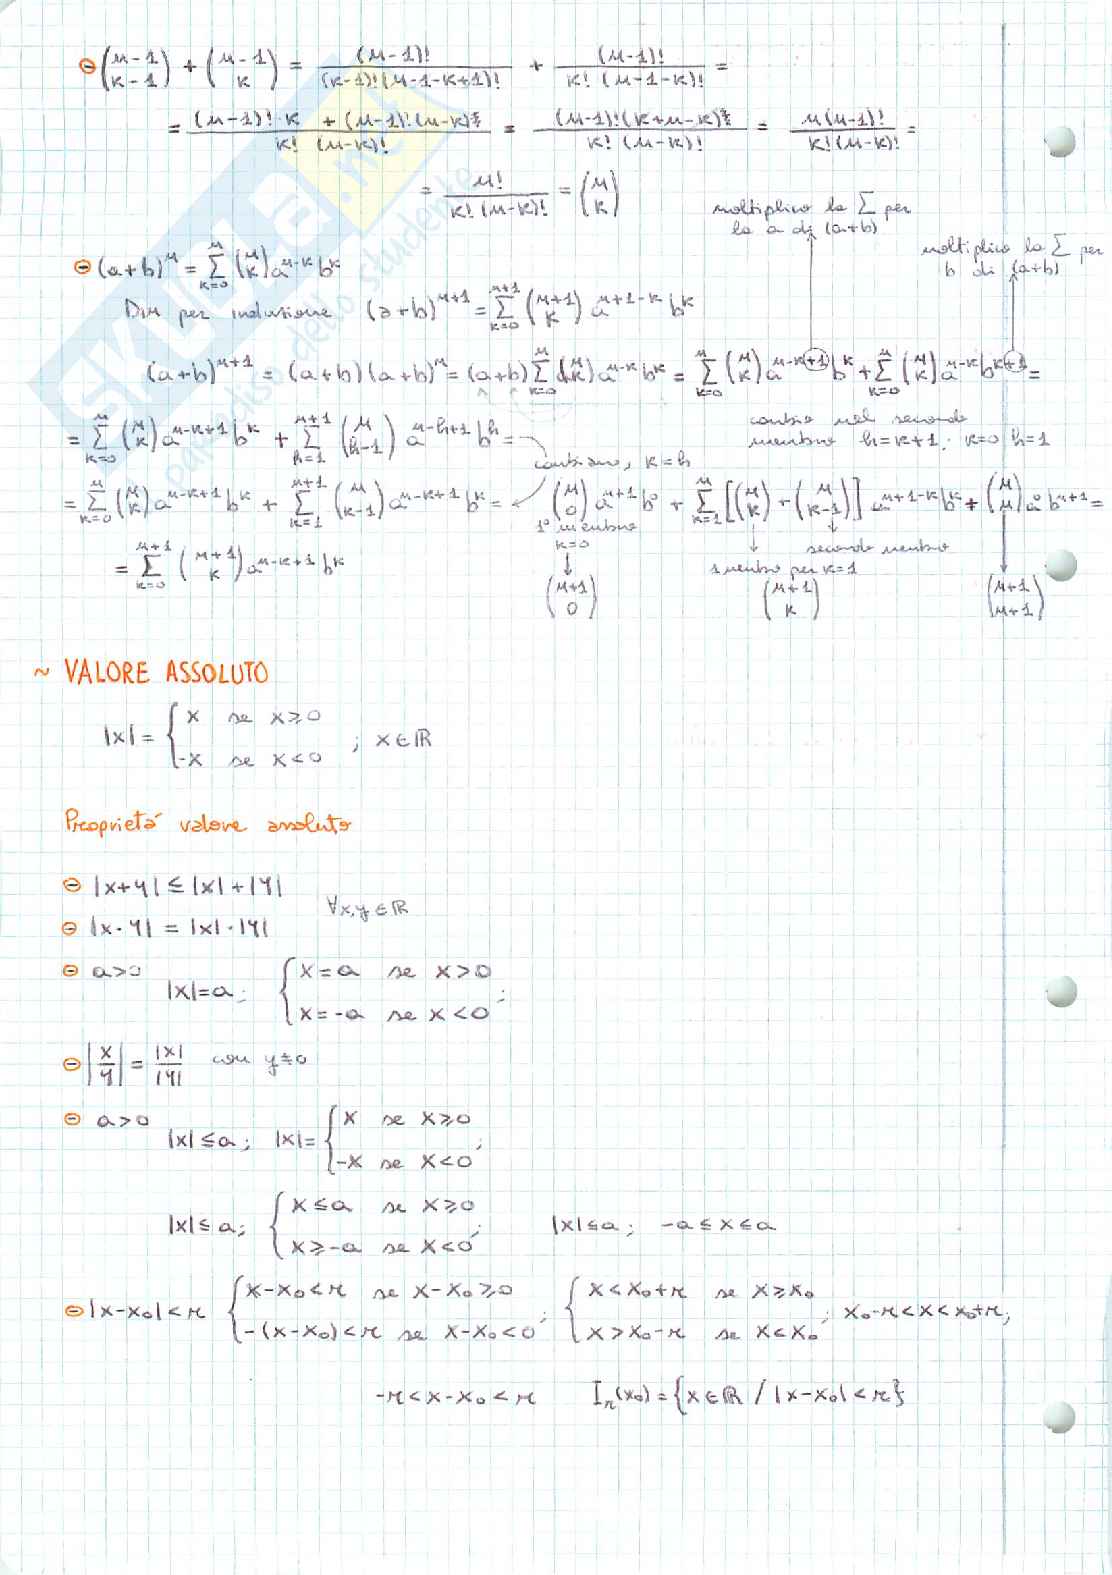 ⊖ (n-1 / k-1) + (n-1 / k) = (n-1)! / (k-1)!(n-1-k+1)! + (n-1)! / k! (n-1-k)! =
= (n-1)!·k + (n-1)!(n-k) / k! (n-k)! = (n-1)!(k+n-k) / k! (n-k)! = n(n-1)! / k!(n-k)! =
= n! / k!(n-k)! = (n / k)
moltiplico la ∑ per
la a di (a+b)
moltiplico la ∑ per
b di (a+b)
⊖ (a+b)^n = ∑_{k=0}^{n} (n / k) a^{n-k} b^k
Dim per induzione (a+b)^{n+1} = ∑_{k=0}^{n+1} (n+1 / k) a^{n+1-k} b^k
(a+b)^{n+1} = (a+b)(a+b)^n = (a+b) ∑_{k=0}^{n} (n / k) a^{n-k} b^k = ∑_{k=0}^{n} (n / k) a^{n-k+1} b^k + ∑_{k=0}^{n} (n / k) a^{n-k} b^{k+1} =
= ∑_{k=0}^{n} (n / k) a^{n-k+1} b^k + ∑_{h=1}^{n+1} (n / h-1) a^{n-h+1} b^h =
cambio nel secondo
membro h=k+1; k=0 h=1
cambiamo, k=h
= ∑_{k=0}^{n} (n / k) a^{n-k+1} b^k + ∑_{k=1}^{n+1} (n / k-1) a^{n-k+1} b^k = (n / 0) a^{n+1} b^0 + ∑_{k=1}^{n} [(n / k) + (n / k-1)] a^{n+1-k} b^k + (n / n) a^0 b^{n+1} =
1° membro
k=0
secondo membro
1 membro per k=1
= ∑_{k=0}^{n+1} (n+1 / k) a^{n-k+1} b^k
(n+1 / 0) (n+1 / k) (n+1 / n+1)
~ VALORE ASSOLUTO
|x| = { x se x≥0
-x se x<0 ; x∈ℝ
Proprietà valore assoluto
⊖ |x+y| ≤ |x|+|y|
∀x,y∈ℝ
⊖ |x·y| = |x|·|y|
⊖ a>0 |x|=a; { x=a se x>0
x=-a se x<0 ;
⊖ |x/y| = |x|/|y| con y≠0
⊖ a>0 |x|≤a; |x|= { x se x≥0
-x se x<0 ;
|x|≤a; { x≤a se x≥0
x≥-a se x<0 ; |x|≤a; -a≤x≤a
⊖ |x-x₀|<r { x-x₀<r se x-x₀≥0
-(x-x₀)<r se x-x₀<0 ; { x<x₀+r se x≥x₀
x>x₀-r se x<x₀ ; x₀-r<x<x₀+r;
-r<x-x₀<r I_r(x₀)={x∈ℝ / |x-x₀|<r}
SKUOLA.net
paradiso dello studente